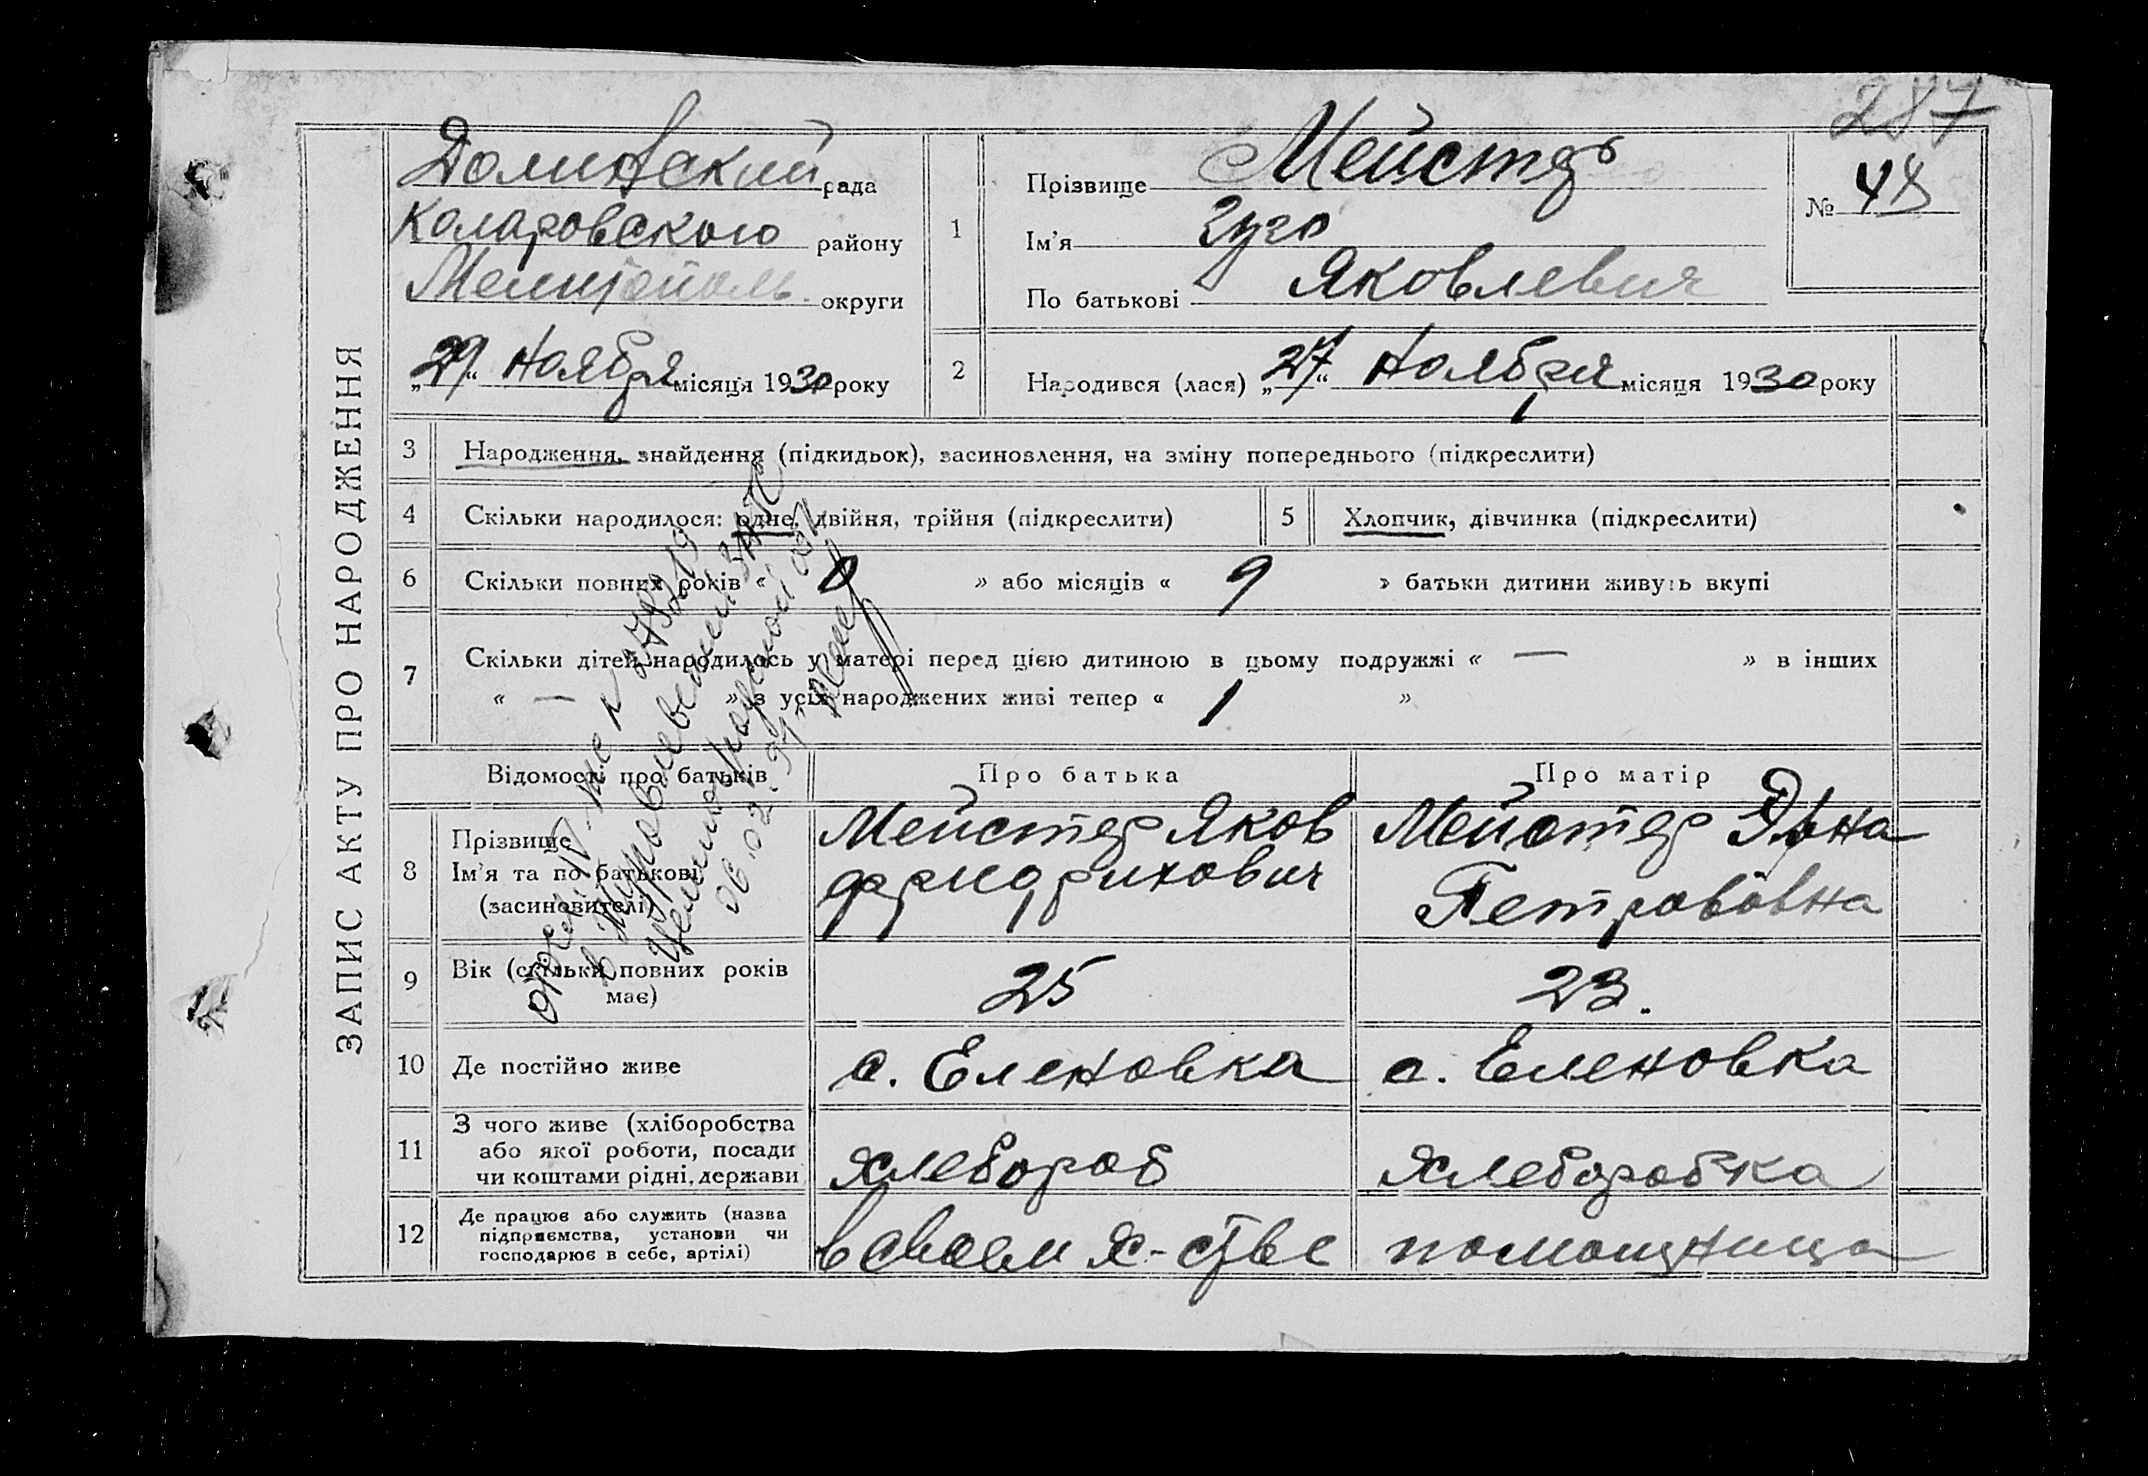 287
ЗАПИС АКТУ ПРО НАРОДЖЕННЯ
Долинский рада
Коларовского району
Мелитополь. округи
„29“ Ноября місяця 1930 року
1
Прізвище Мейстер
Ім’я Гуго
По батькові Яковлевич
№ 48
2
Народився (лася) „27“ Ноября місяця 1930 року
3 Народження, знайдення (підкидьок), засиновлення, на зміну попереднього (підкреслити)
4 Скільки народилося: одне, двійня, трійня (підкреслити)
5 Хлопчик, дівчинка (підкреслити)
6 Скільки повних років « 0 » або місяців « 9 » батьки дитини живуть вкупі
7 Скільки дітей народилось у матері перед цією дитиною в цьому подружжі « — » в інших
« — » з усіх народжених живі тепер « 1 »
Відомості про батьків
Про батька
Про матір
8 Прізвище
Ім’я та по батькові
(засиновителі)
Мейстер Яков
Фридрихович
Мейстер
Петрововна
9 Вік (скільки повних років
має)
25
23.
10 Де постійно живе
с. Еленовка
с. Еленовка
11 З чого живе (хліборобства
або якої роботи, посади
чи коштами рідні, держави
хлебороб
хлеборобка
12 Де працює або служить (назва
підприємства, установи чи
господарює в себе, артілі)
в своем х-стве
помощница
ЗАГС
Целиноградской обл
06.02.91